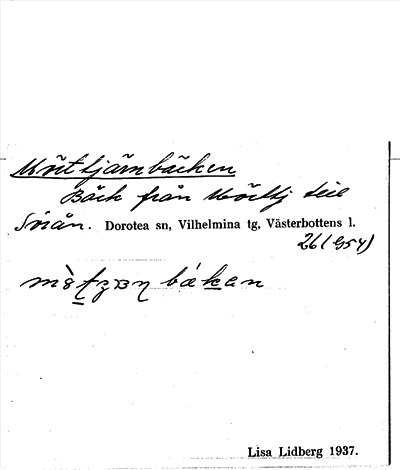 Mörttjärnbäcken
Bäck från Mörttj till
Sörån. Dorotea sn, Vilhelmina tg, Västerbottens l.
26 (954)
bákan
Lisa Lidberg 1937.